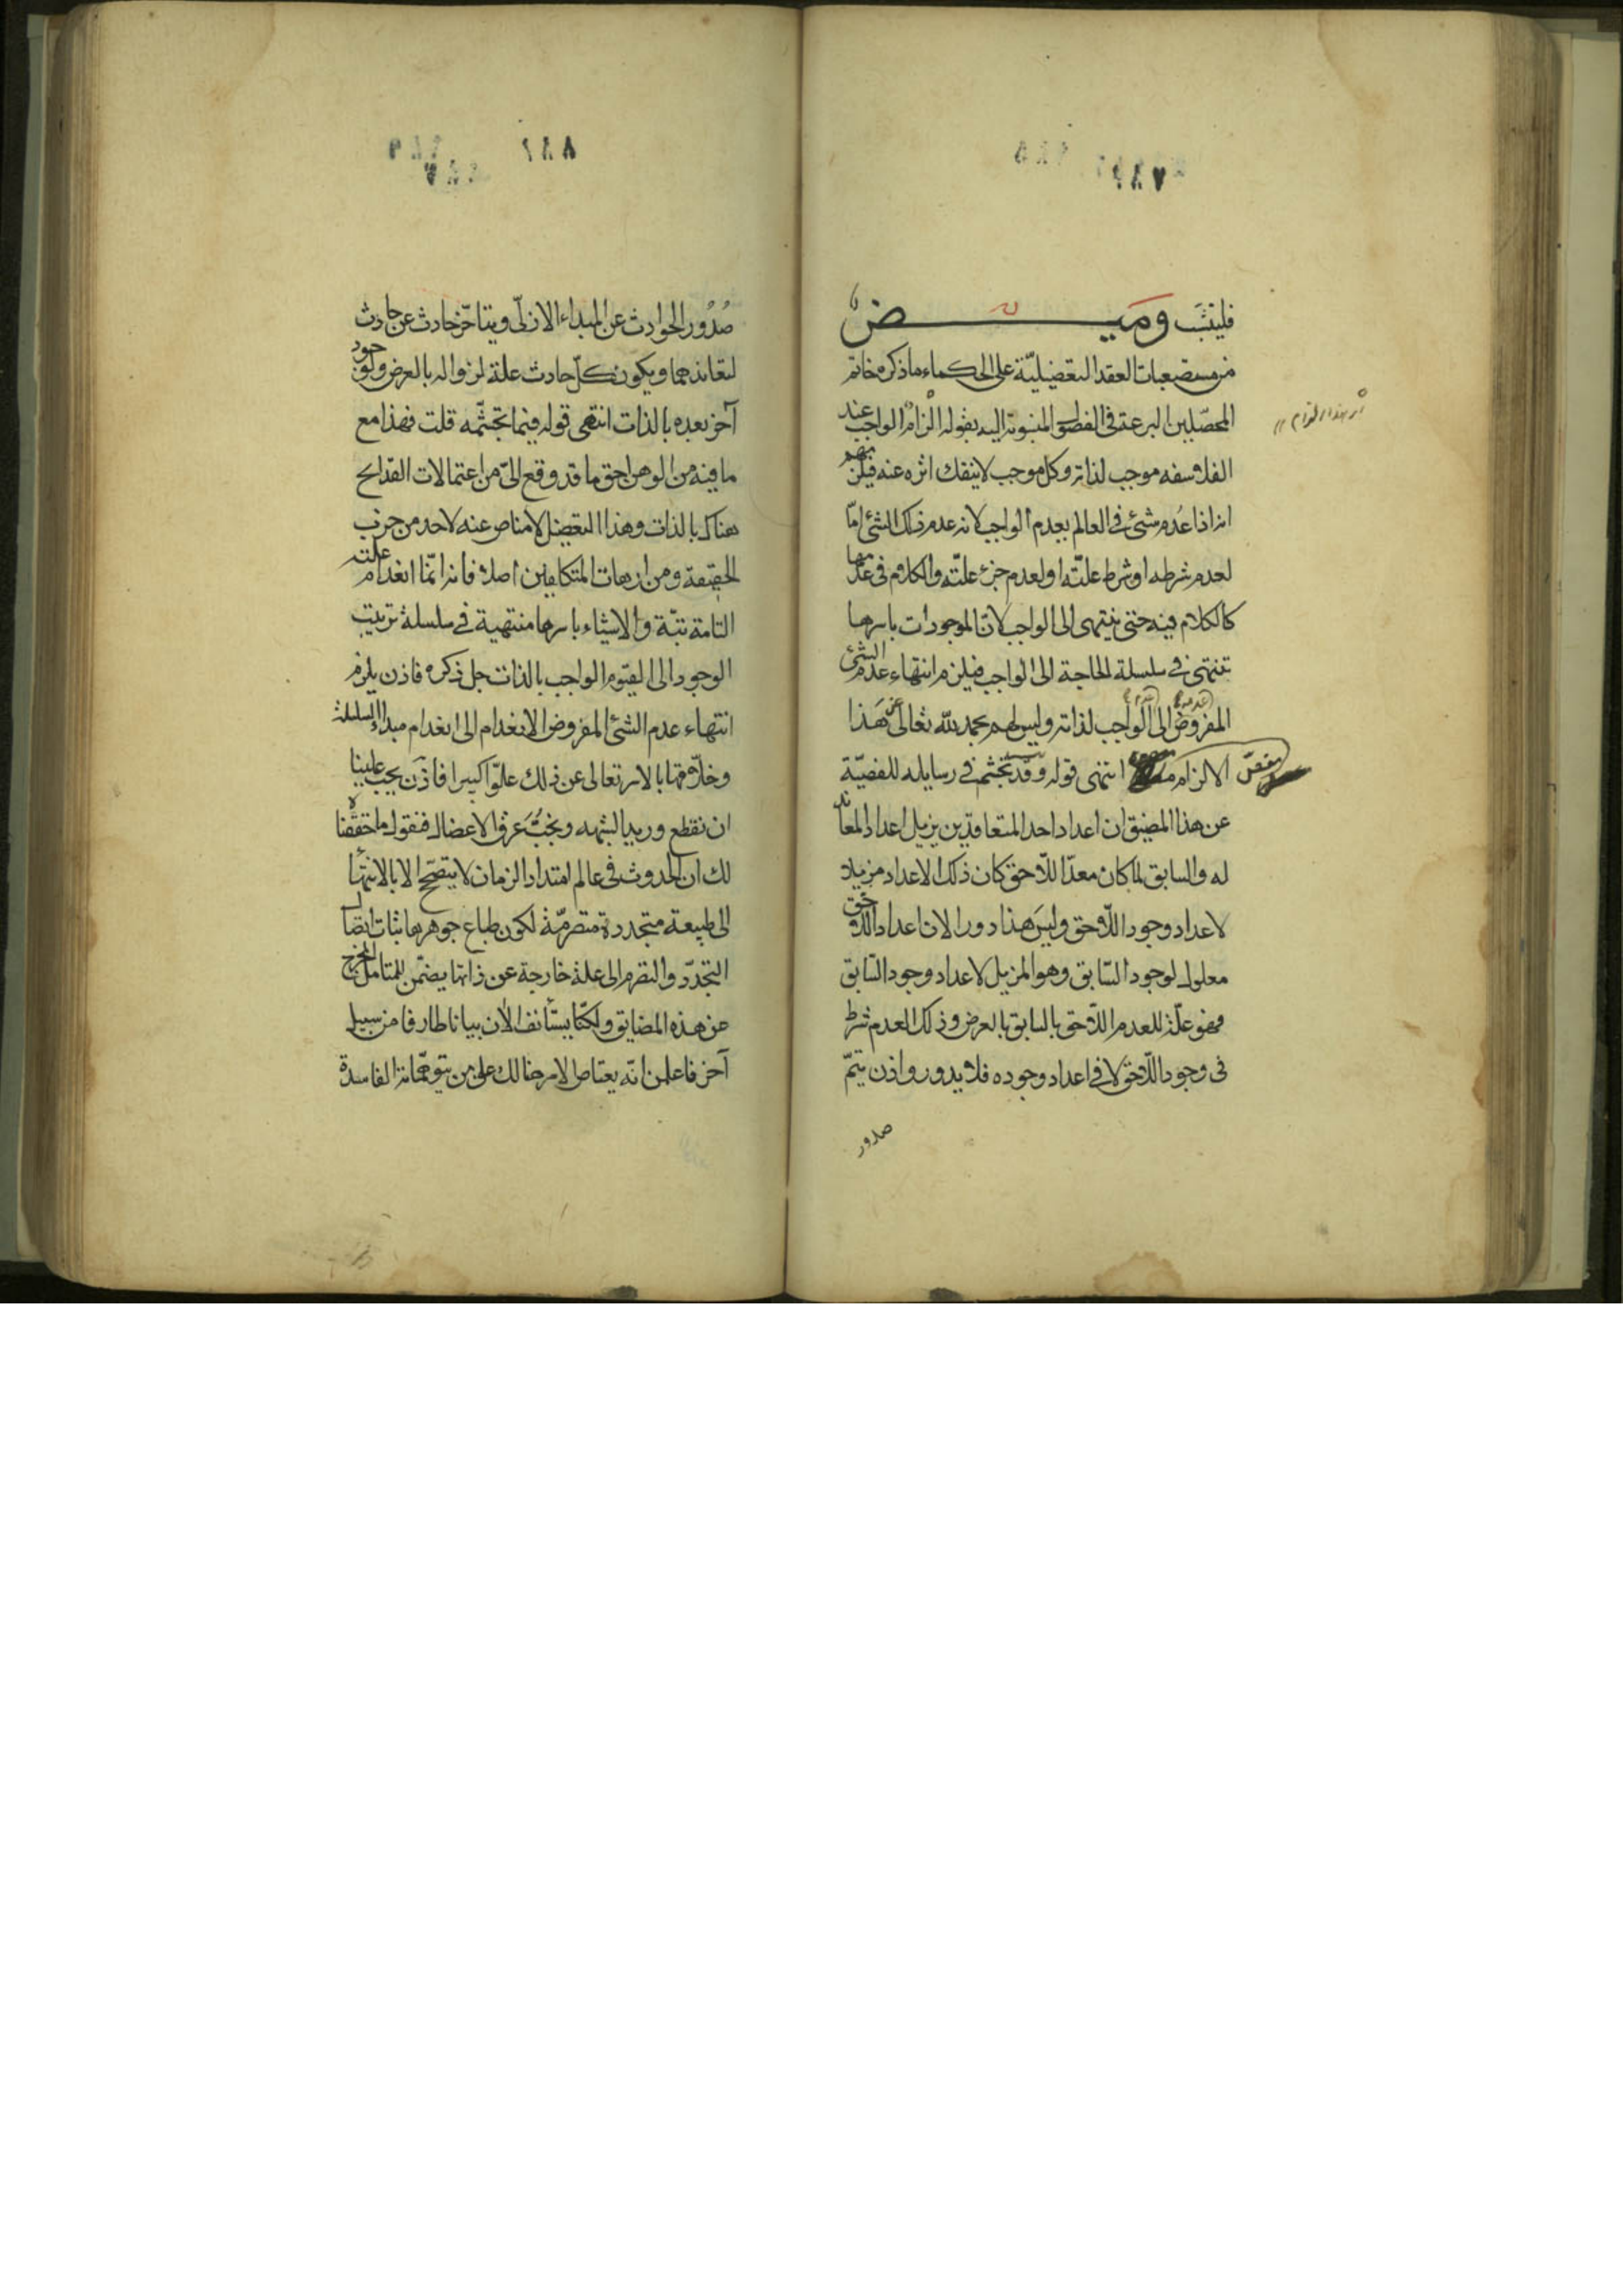 فليثبت وميض
من مستصعبات العقد التعضيليّة على الحكماء ما ذكره خاتم
المحصّلين البرعة في الفصول المنسوبة اليه بقوله الزام الواجب عند
الفلاسفه موجب لذاته وكل موجب لا ينفك اثره عنه فيلزمهم
انه اذا عُدم شئ في العالم بعدم الواجب لانه عدم ذلك الشئ امّا
لعدم شرطه او شرط علتّه او لعدم جزء علتّه والكلام في عدمها
كالكلام فيه حتى ينتهى الى الواجب لانّ الموجودات باسرها
تنتهى في سلسلة الحاجة الى الواجب فيلزم انتهاء عدم الشئ
المفروض الى الواجب لذاته وليس لهم بحمد لله تعالى عن هذا
الالزام انتهى قوله وقد تجشّم في رسايله للفصيّة
عن هذا المضيق ان اعداد احد المتعاندين يزيل اعداد المعاند
له والسابق لما كان معدّا للّاحق كان ذلك الاعداد مزيلا
لاعداد وجود اللّاحق وليس هذا دورا لان اعداد اللّاحق
معلول لوجود السّابق وهو المزيل لاعداد وجود السّابق
فهو علّة للعدم اللّاحق بالسابق بالعرض وذلك العدم شرط
فى وجود اللّاحق لا في اعداد وجوده فلا يدور واذن يتمّ
صدور
صُدُور الحوادث عن المبداء الازلّى ويتاخّر حادث عن حادث
لتعاندهما ويكون كلّ حادث علة لزواله بالعرض ولوجود
آخر بعده بالذات انتهى قوله فيما تجشّمه قلت فهذا مع
ما فيه من الوهن احق ما قد وقع الىّ من اعتمالات القدايح
هناك بالذات وهذا التعضيل لا مناص عنه لاحد من حزب
الحقيقة ومن ازهات المتكلفين اصلا فانه انّما انعدام علته
التامة بتّة والاشياء باسرها منتهية في سلسلة ترتيب
الوجود الى القيّوم الواجب بالذات جل ذكره فاذن يلزم
انتهاء عدم الشئ المفروض الانعدام الى انعدام مبداء السلسلة
وخلّاقها بالامر تعالى عن ذلك علوّا كبيرا فاذن يجب علينا
ان نقطع وريد الشبهه ونجبّ عرق الاعضال فنقول ما حققّناه
لك ان الحدوث في عالم امتداد الزمان لا يتصحّح الا بالانتهاء
الى طبيعة متجددة متصرمّة لكون طباع جوهرها ثبات اتصال
التجدّد والتصرم الى علة خارجة عن ذاتها يضمّن للمتامل المخرج
عن هذه المضايق ولكنّا نستأنف الآن بيانا طارفا من سبيل
آخر فاعلمن انّه يعتاص الامر هنالك على من يتوهّمانه الفاسدة